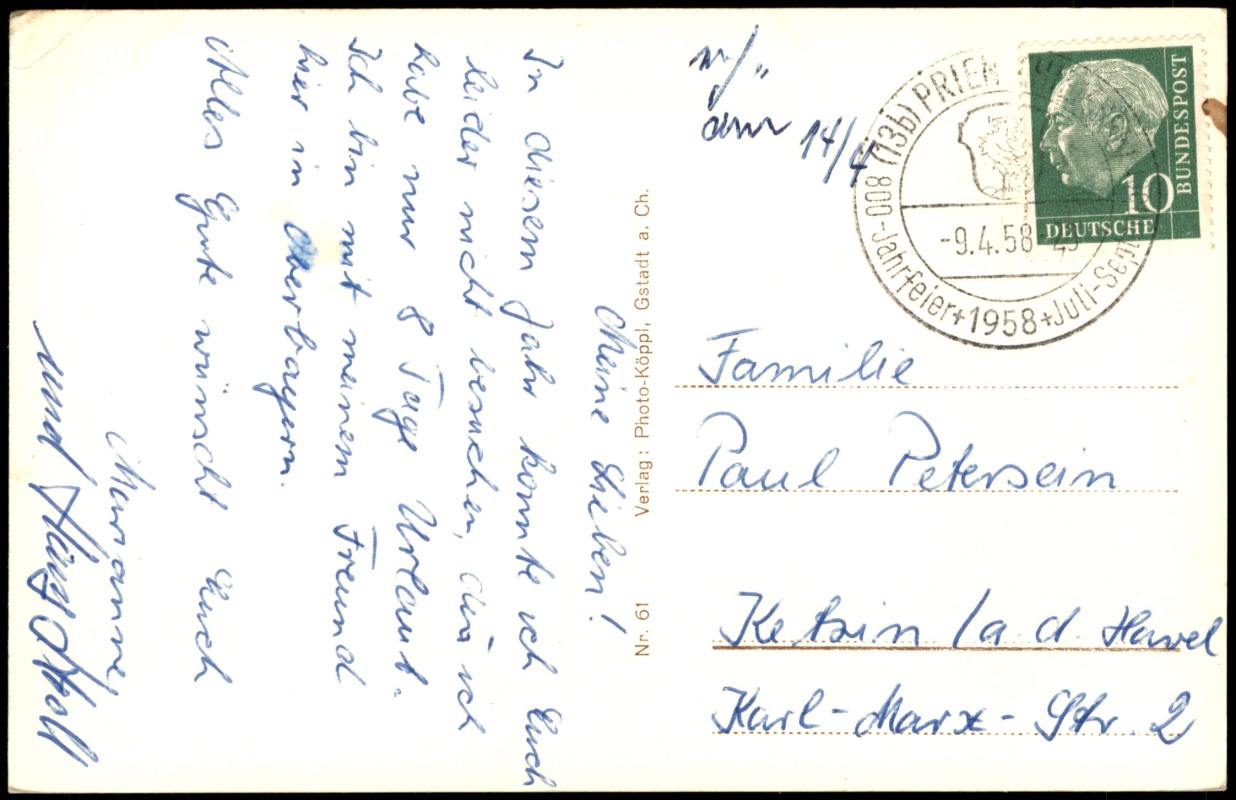 Meine Lieben!
In diesem Jahr konnte ich Euch
leider nicht besuchen, da ich
habe nur 8 Tage Urlaub.
Ich bin mit meinem Freund
hier in Oberbayern.
Alles Gute wünscht Euch
Marianne,
und
Nr. 61 Verlag: Photo-Köppl, Gstadt a. Ch.
14/4
(13b) PRIEN
-9.4.58
800-Jahrfeier+1958+Juli-Sept
BUNDESPOST
10
DEUTSCHE
Familie
Paul Petersein
Ketzin /a. d. Havel
Karl-Marx-Str. 2